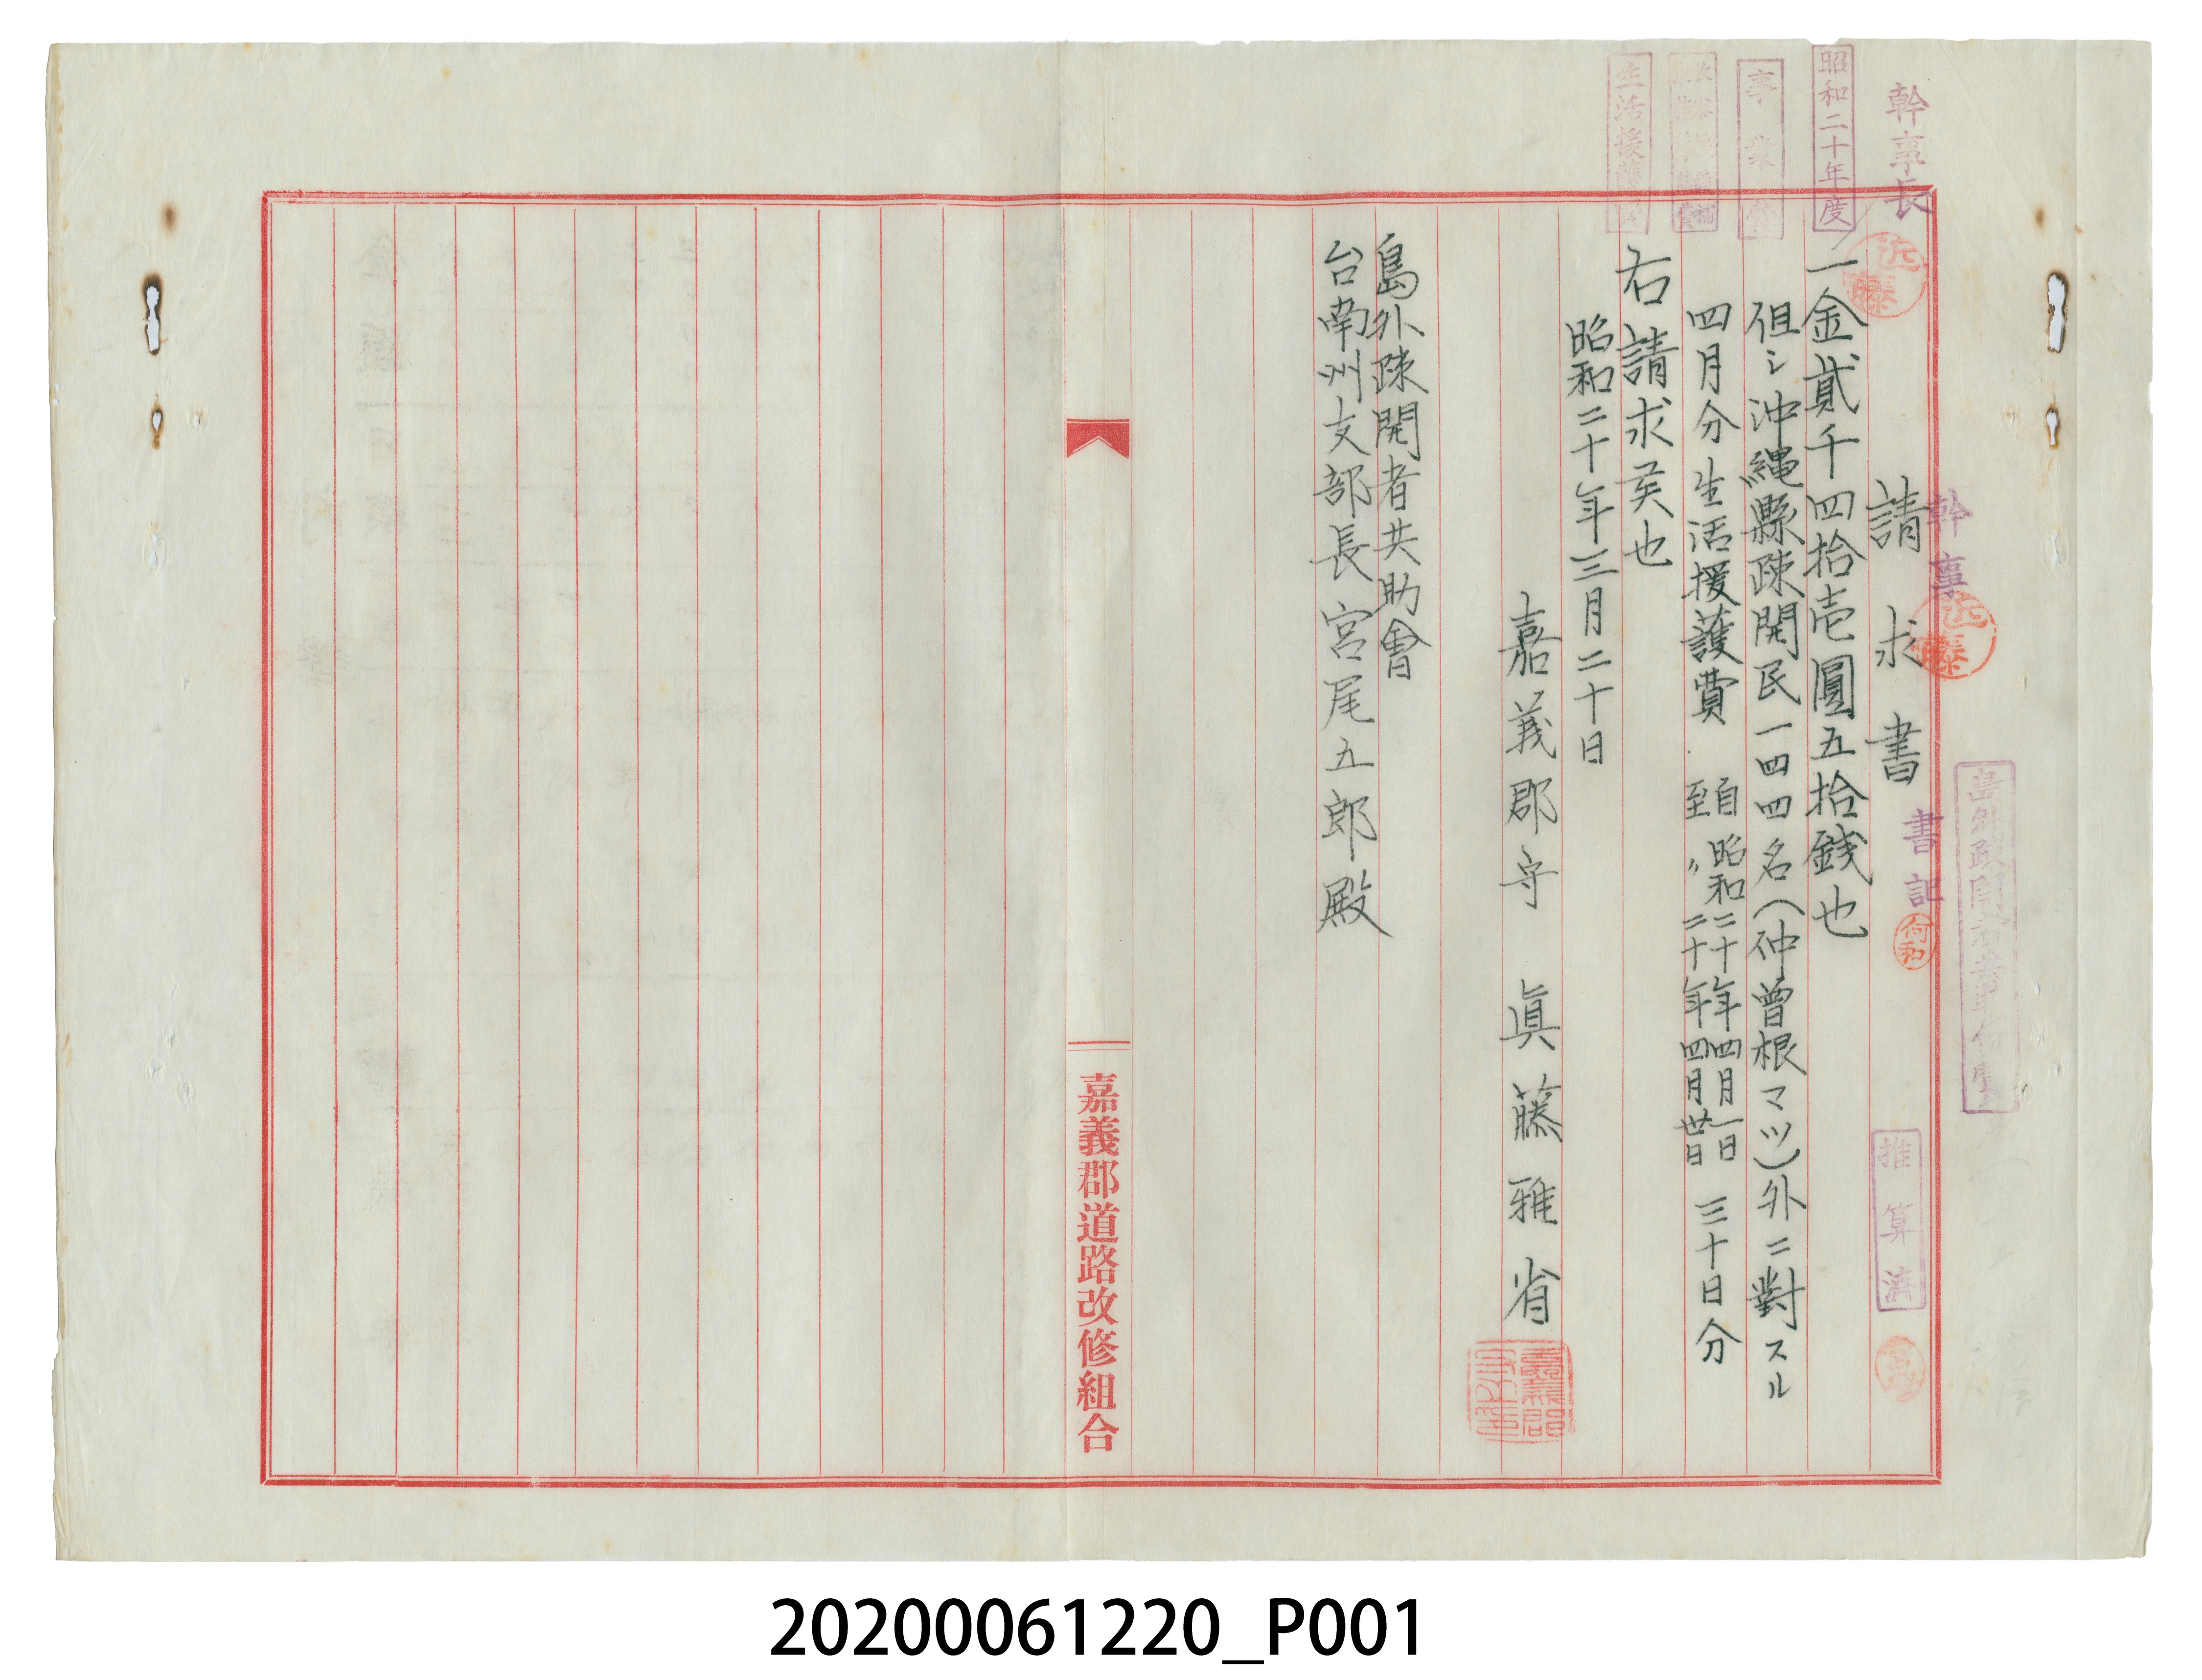 幹事長
近藤
昭和二十年度
事業費
生活援護費
請求書
幹事
近藤
書記
推算濟
一金貳千四拾壱圓五拾銭也
但シ沖縄縣疎開民一四四名(仲曽根マツ)外ニ對スル
四月分生活援護費 自昭和二十年四月一日 三十日分
至〃二十年四月卅日
右請求矦也
昭和二十年三月二十日
嘉義郡守 眞藤雅省
島外疎開者共助會
台南州支部長宮尾五郎殿
嘉義郡道路改修組合
20200061220_P001